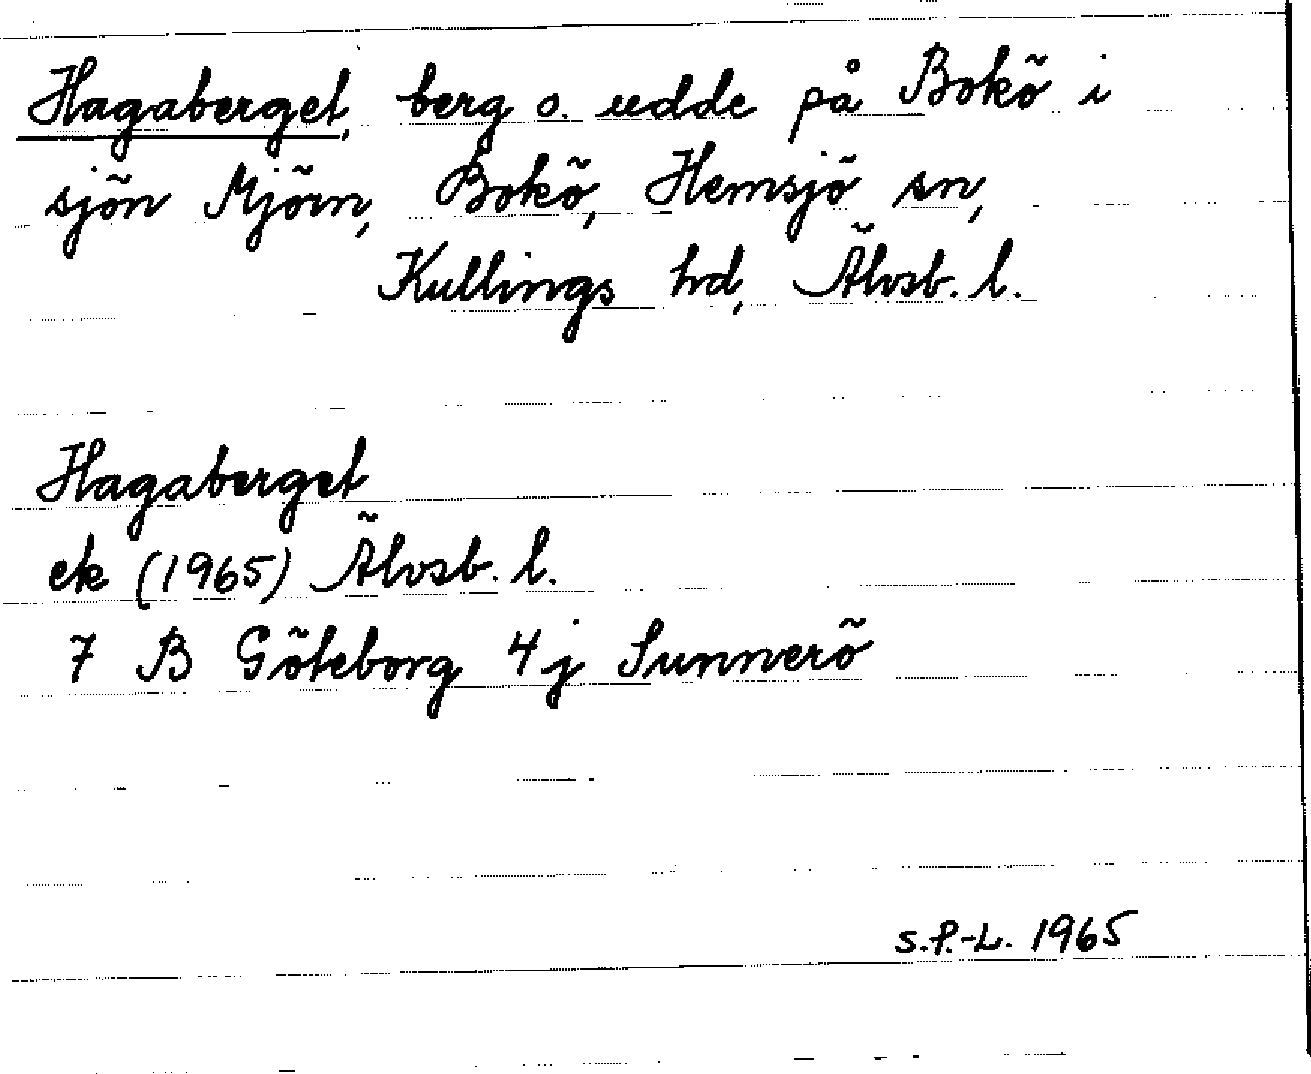 Hagaberget, berg o. udde på Bokö i
sjön Mjörn, Bokö, Hemsjö sn,
Kullings hd, Älvsb. l.
Hagaberget
ek (1965) Älvsb. l.
7 B Göteborg 4 j Sunnerö
S.P.-L. 1965